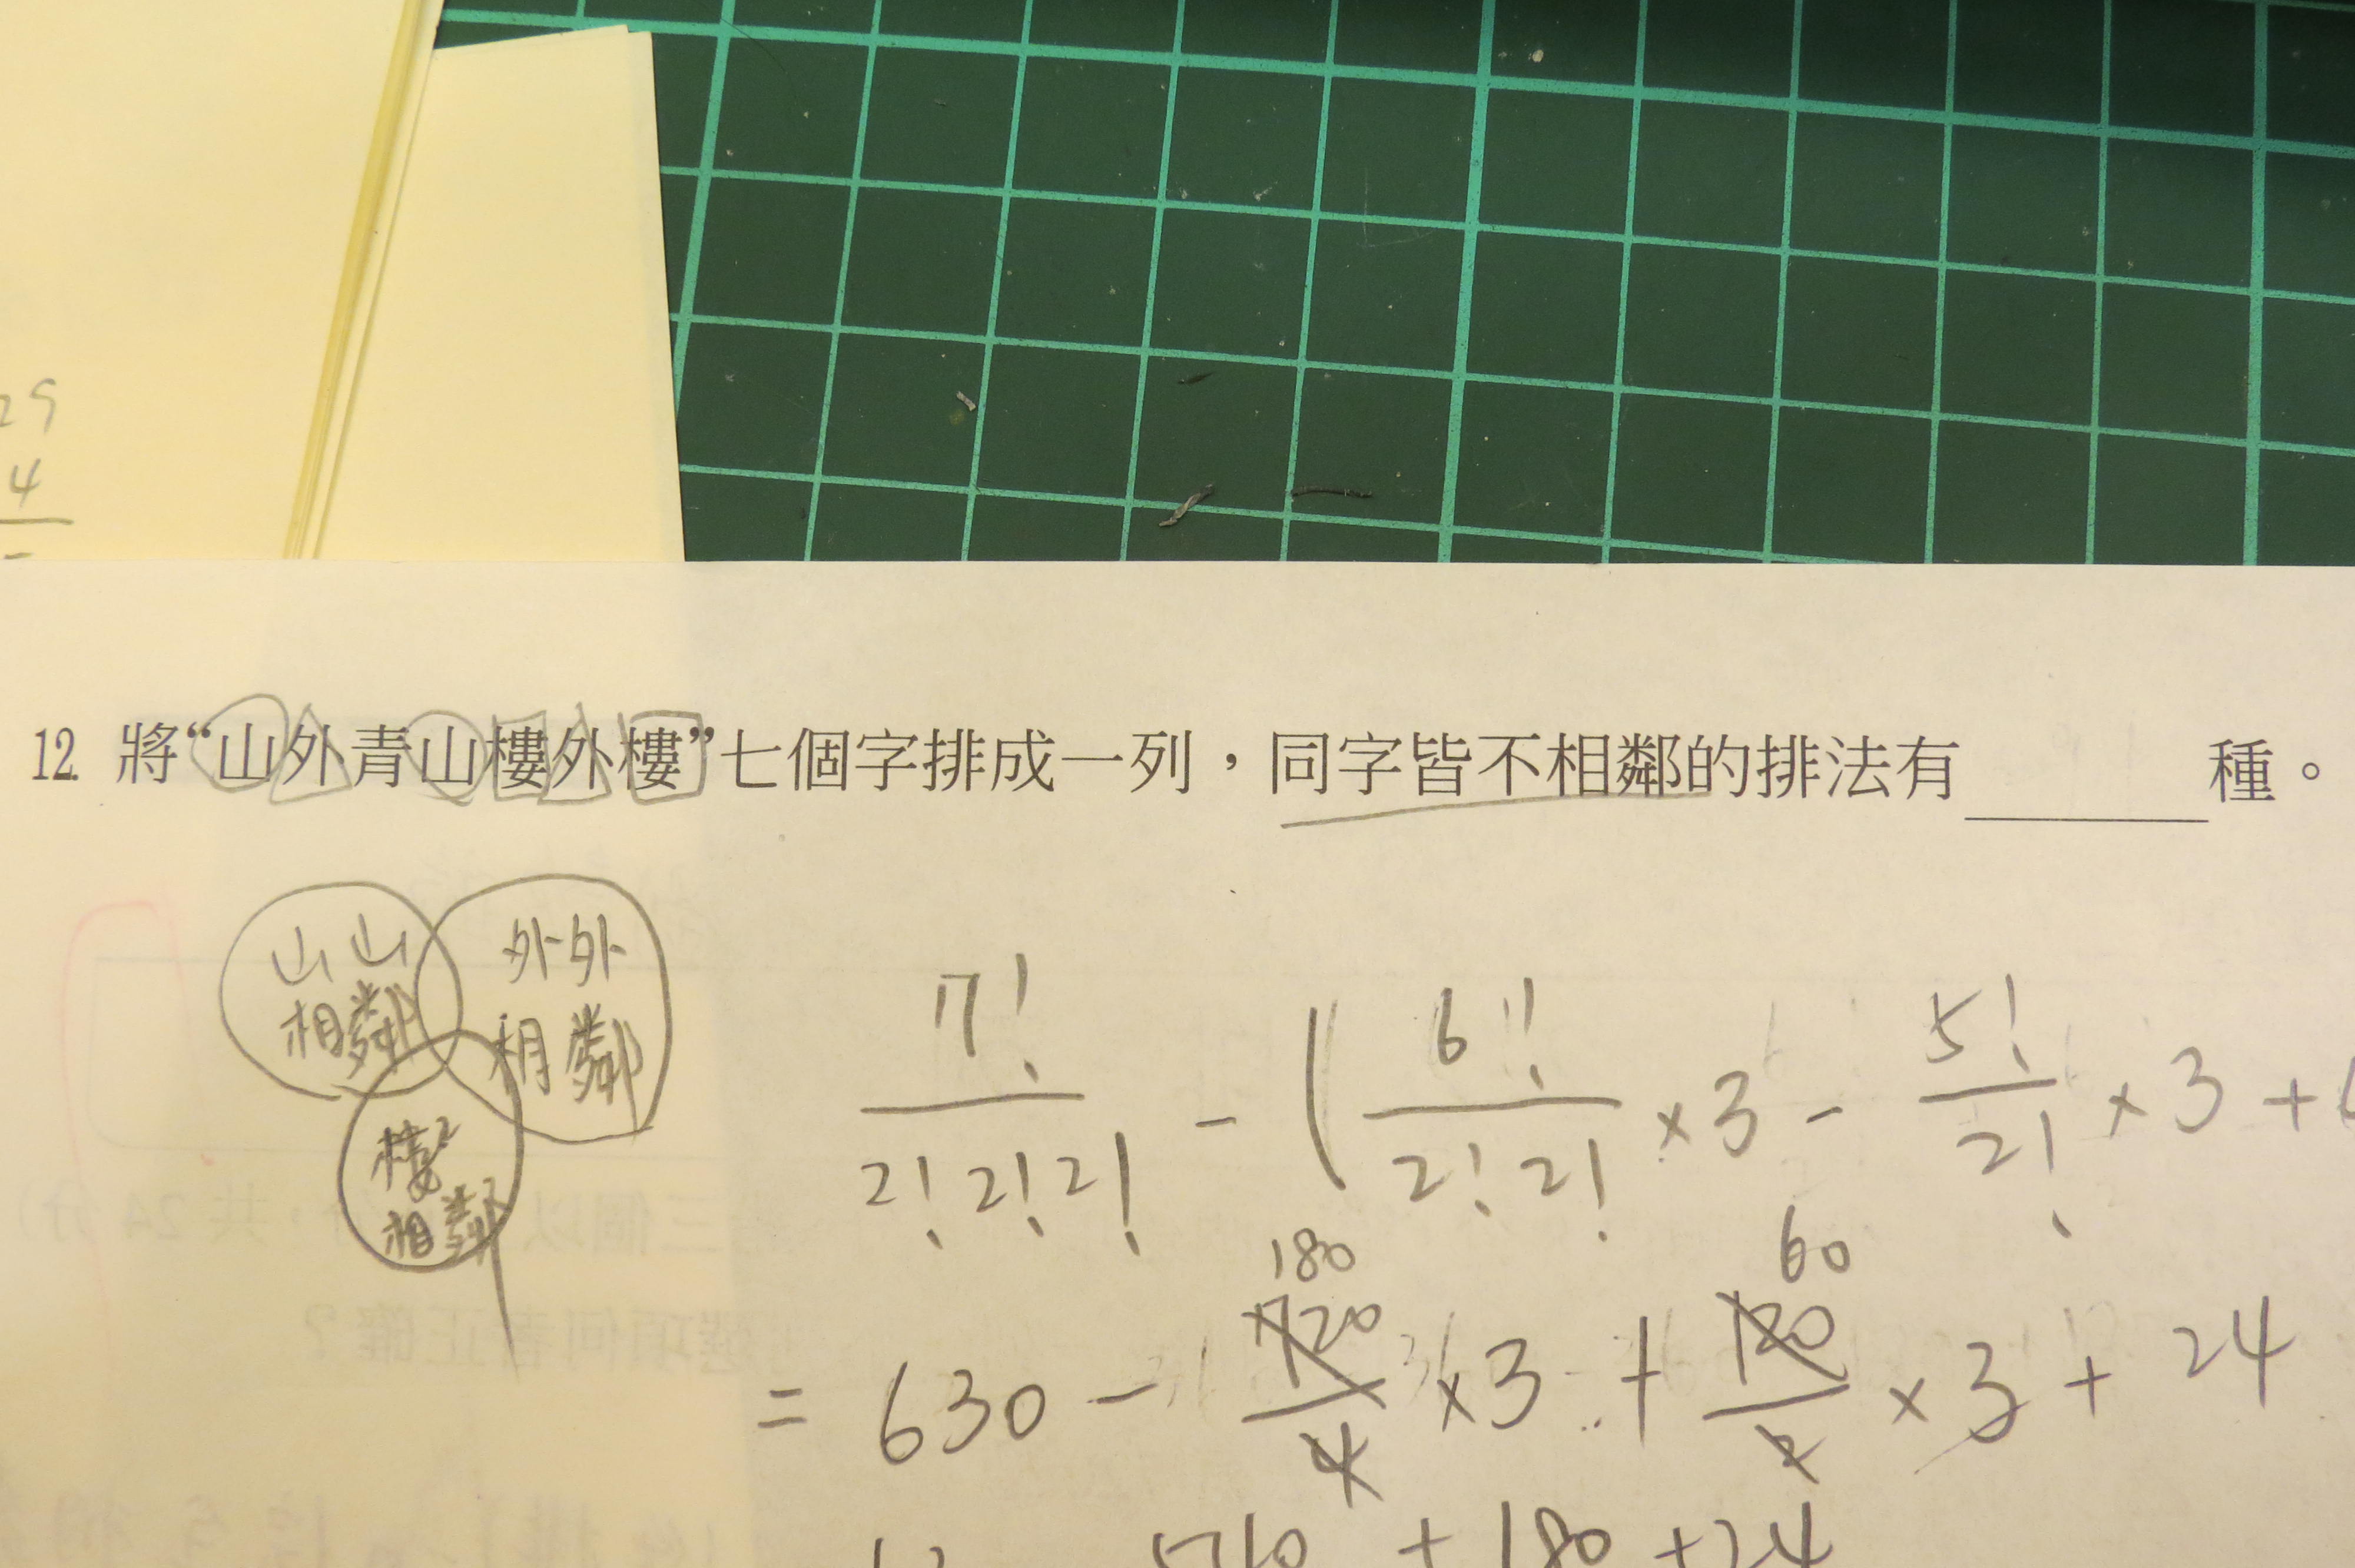 29
4
12. 將“山外青山樓外樓”七個字排成一列，同字皆不相鄰的排法有______種。
山山 相鄰
外外 相鄰
樓² 相鄰
7!/2!2!2! - ( 6!/2!2! ×3 - 5!/2! ×3 +
= 630 - 720/4 ×3 + 120/2 ×3 + 24
180
60
+ 180 + 24